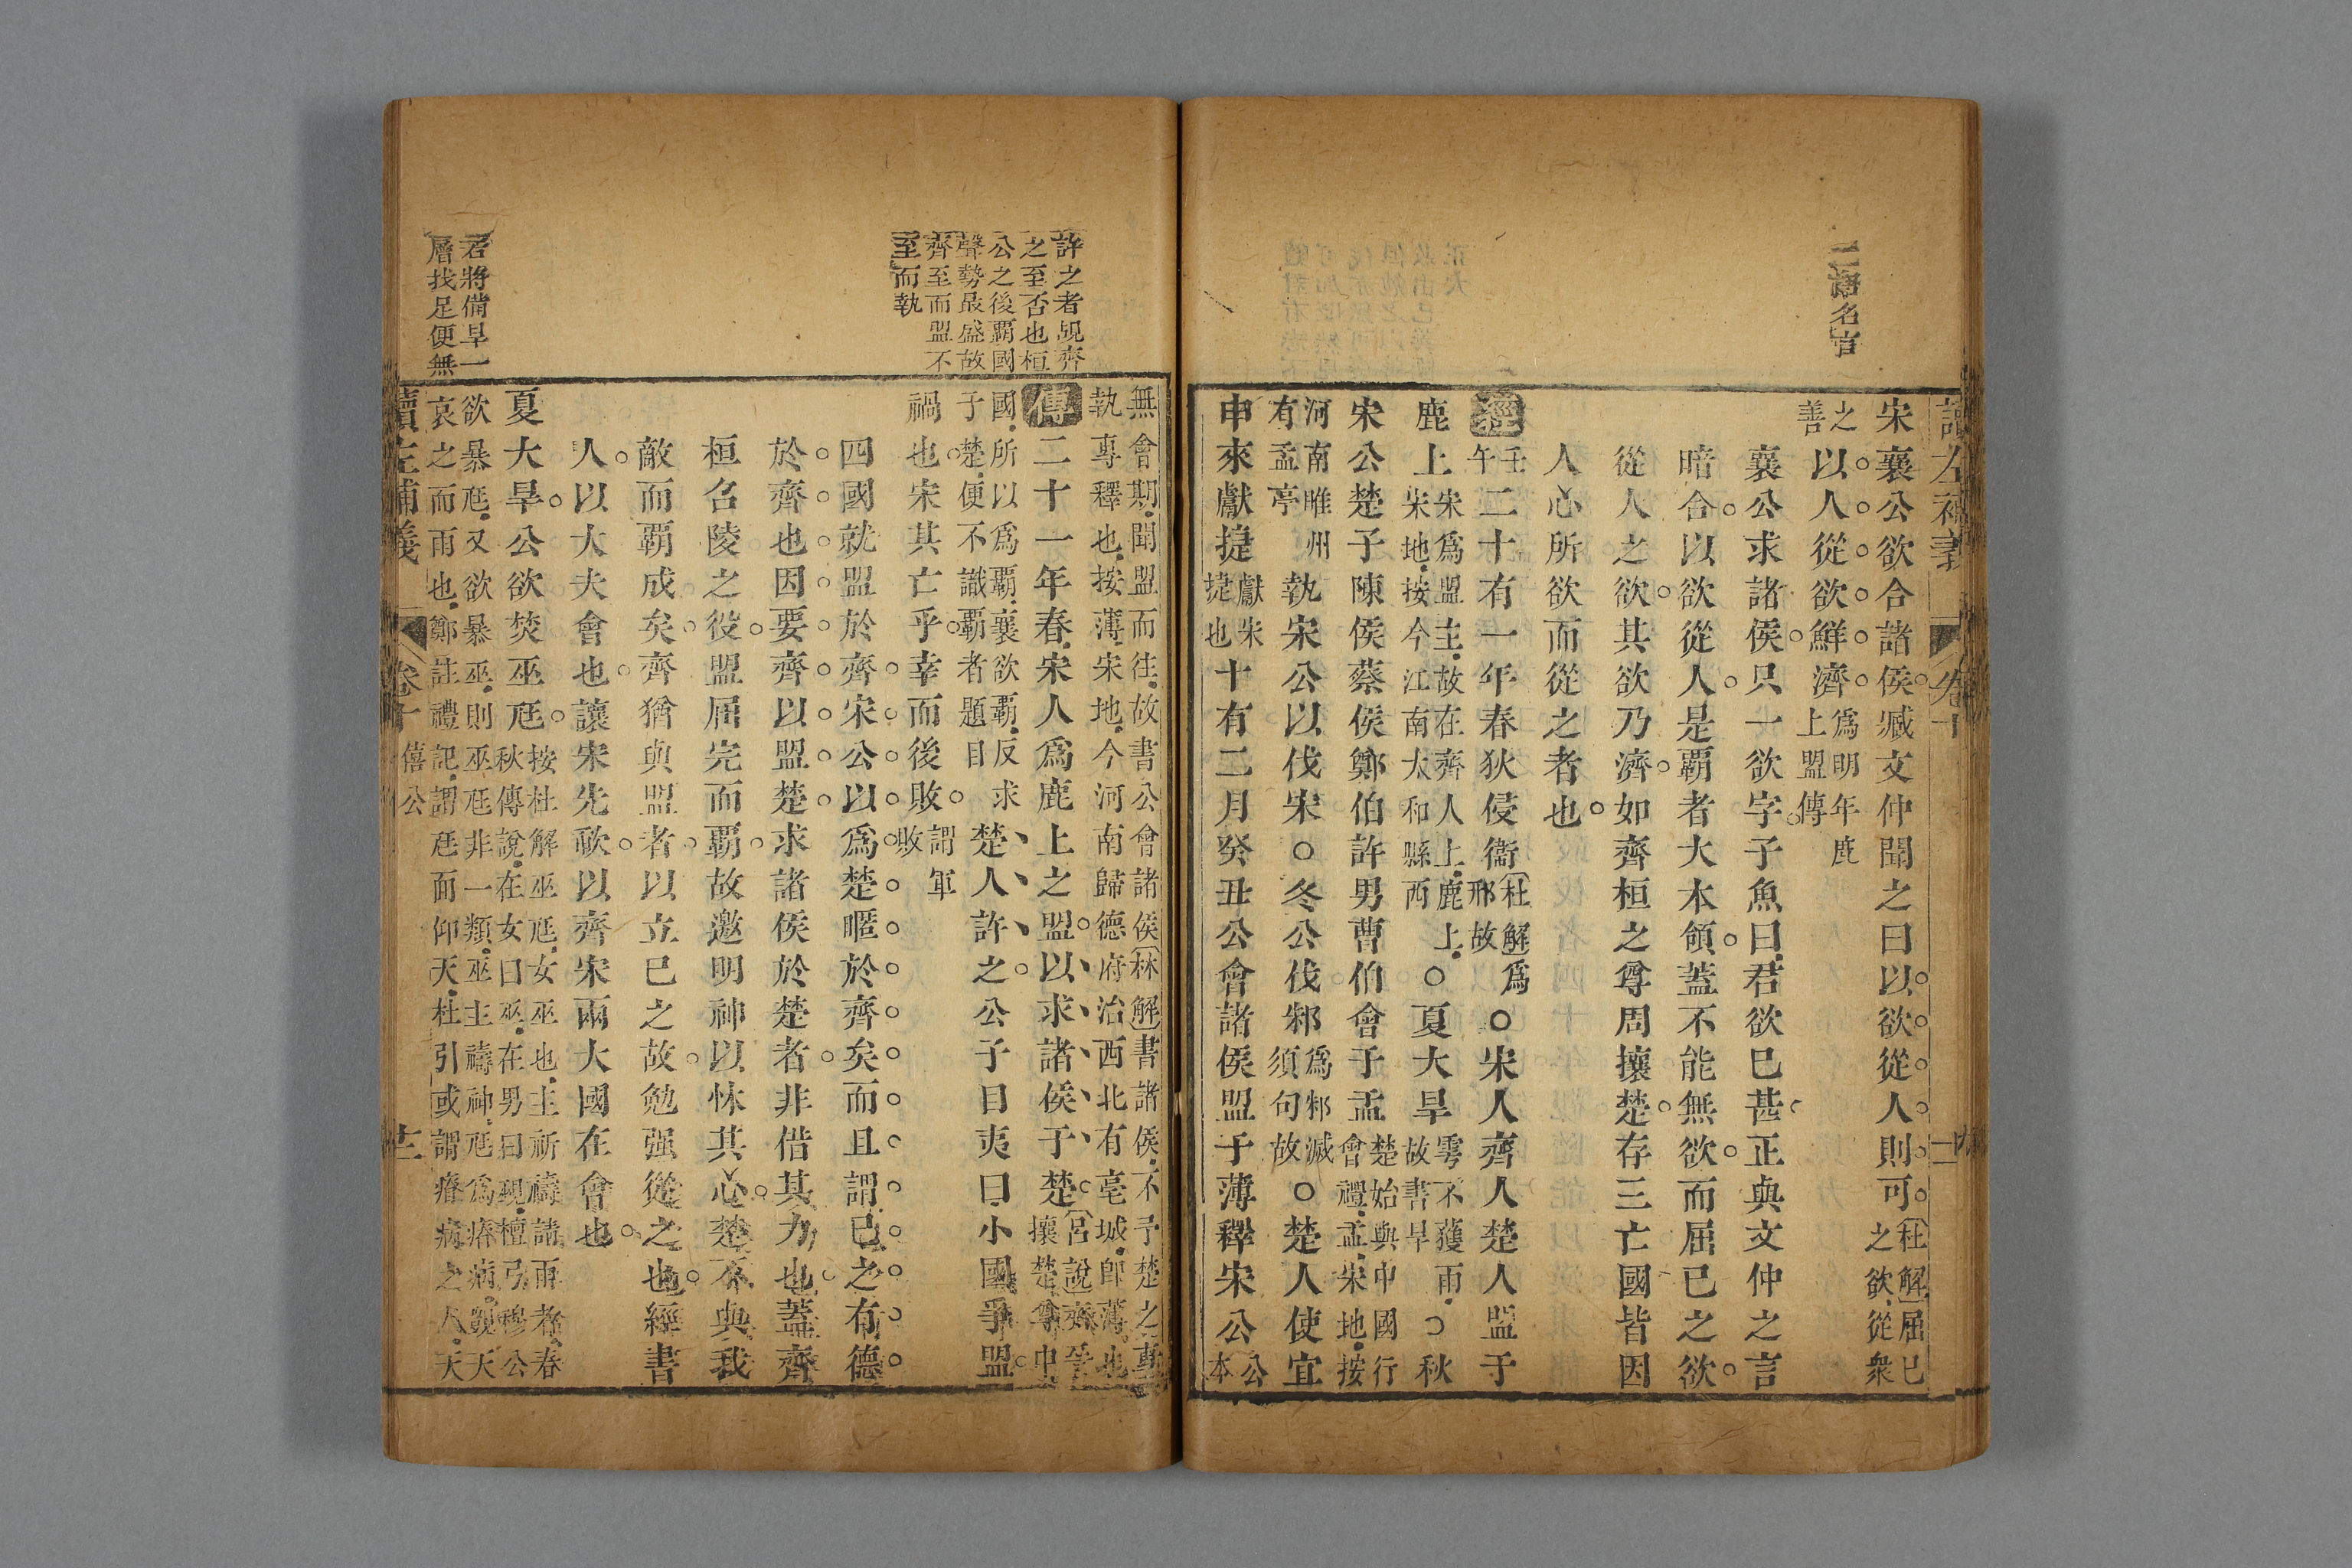 宋襄公欲合諸侯臧文仲聞之曰以欲從人則可杜解屈已之欲從衆
之善以人從欲鮮濟爲明年鹿上盟傳
襄公求諸侯只一欲字子魚曰君欲已甚正與文仲之言
暗合以欲從人是覇者大本領蓋不能無欲而屈已之欲
從人之欲其欲乃濟如齊桓之尊周攘楚存三亡國皆因
人心所欲而從之者也
經壬午二十有一年春狄侵衞杜解爲邢故○宋人齊人楚人盟于
鹿上宋爲盟主故在齊人上鹿上宋地按今江南太和縣西○夏大旱雩不獲雨故書旱○秋
宋公楚子陳侯蔡侯鄭伯許男曹伯會于盂楚始與中國行會禮盂宋地按
河南睢州有盂亭執宋公以伐宋○冬公伐邾爲邾滅須句故○楚人使宜
申來獻捷獻宋捷也十有二月癸丑公會諸侯盟于薄釋宋公公本
無會期聞盟而往故書公會諸侯林解書諸侯不予楚之專
執專釋也按薄宋地今河南歸德府治西北有亳城即薄也
傳二十一年春宋人爲鹿上之盟以求諸侯于楚呂說齊攘楚尊中
國所以爲覇襄欲覇反求子楚便不識覇者題目楚人許之公子目夷曰小國爭盟
禍也宋其亡乎幸而後敗謂軍敗
四國就盟於齊宋公以爲楚暱於齊矣而且謂已之有德
於齊也因要齊以盟楚求諸侯於楚者非借其力也蓋齊
桓召陵之役盟屈完而覇故邀明神以怵其心楚不與我
敵而覇成矣齊猶與盟者以立已之故勉强從之也經書
人以大夫會也讓宋先歃以齊宋兩大國在會也
夏大旱公欲焚巫尫按杜解巫尫女巫也主祈禱請雨者春秋傳說在女曰巫在男曰覡檀弓穆公
欲暴尫又欲暴巫則巫尫非一類巫主禱神尫爲瘠病覬天
哀之而雨也鄭註禮記謂尫而仰天杜引或謂瘠病之人天
許之者覘齊
之至否也桓
公之後覇國
聲勢最盛故
齊至而盟不
至而執
若將備旱一
層找足便無
讀左補義
卷十
僖公